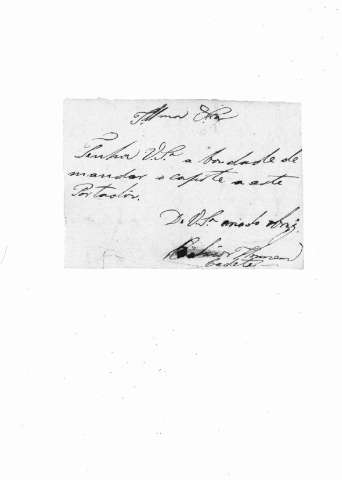 Illma Snra
Tenha V.Sª a bondade de
mandar o capote a este
Portador.
De V.Sª criado obrigº.
Cadete